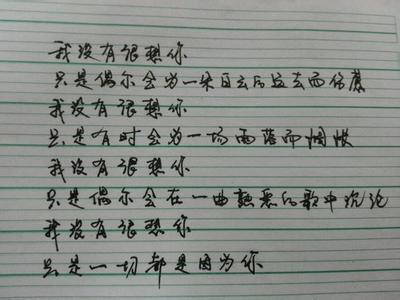 我没有很想你
只是偶尔会为一朵白云的远去而伤感
我没有很想你
只是有时会为一场雨落而惆怅
我没有很想你
只是偶尔会在一曲熟悉的歌中沉沦
我没有很想你
只是一切都是因为你